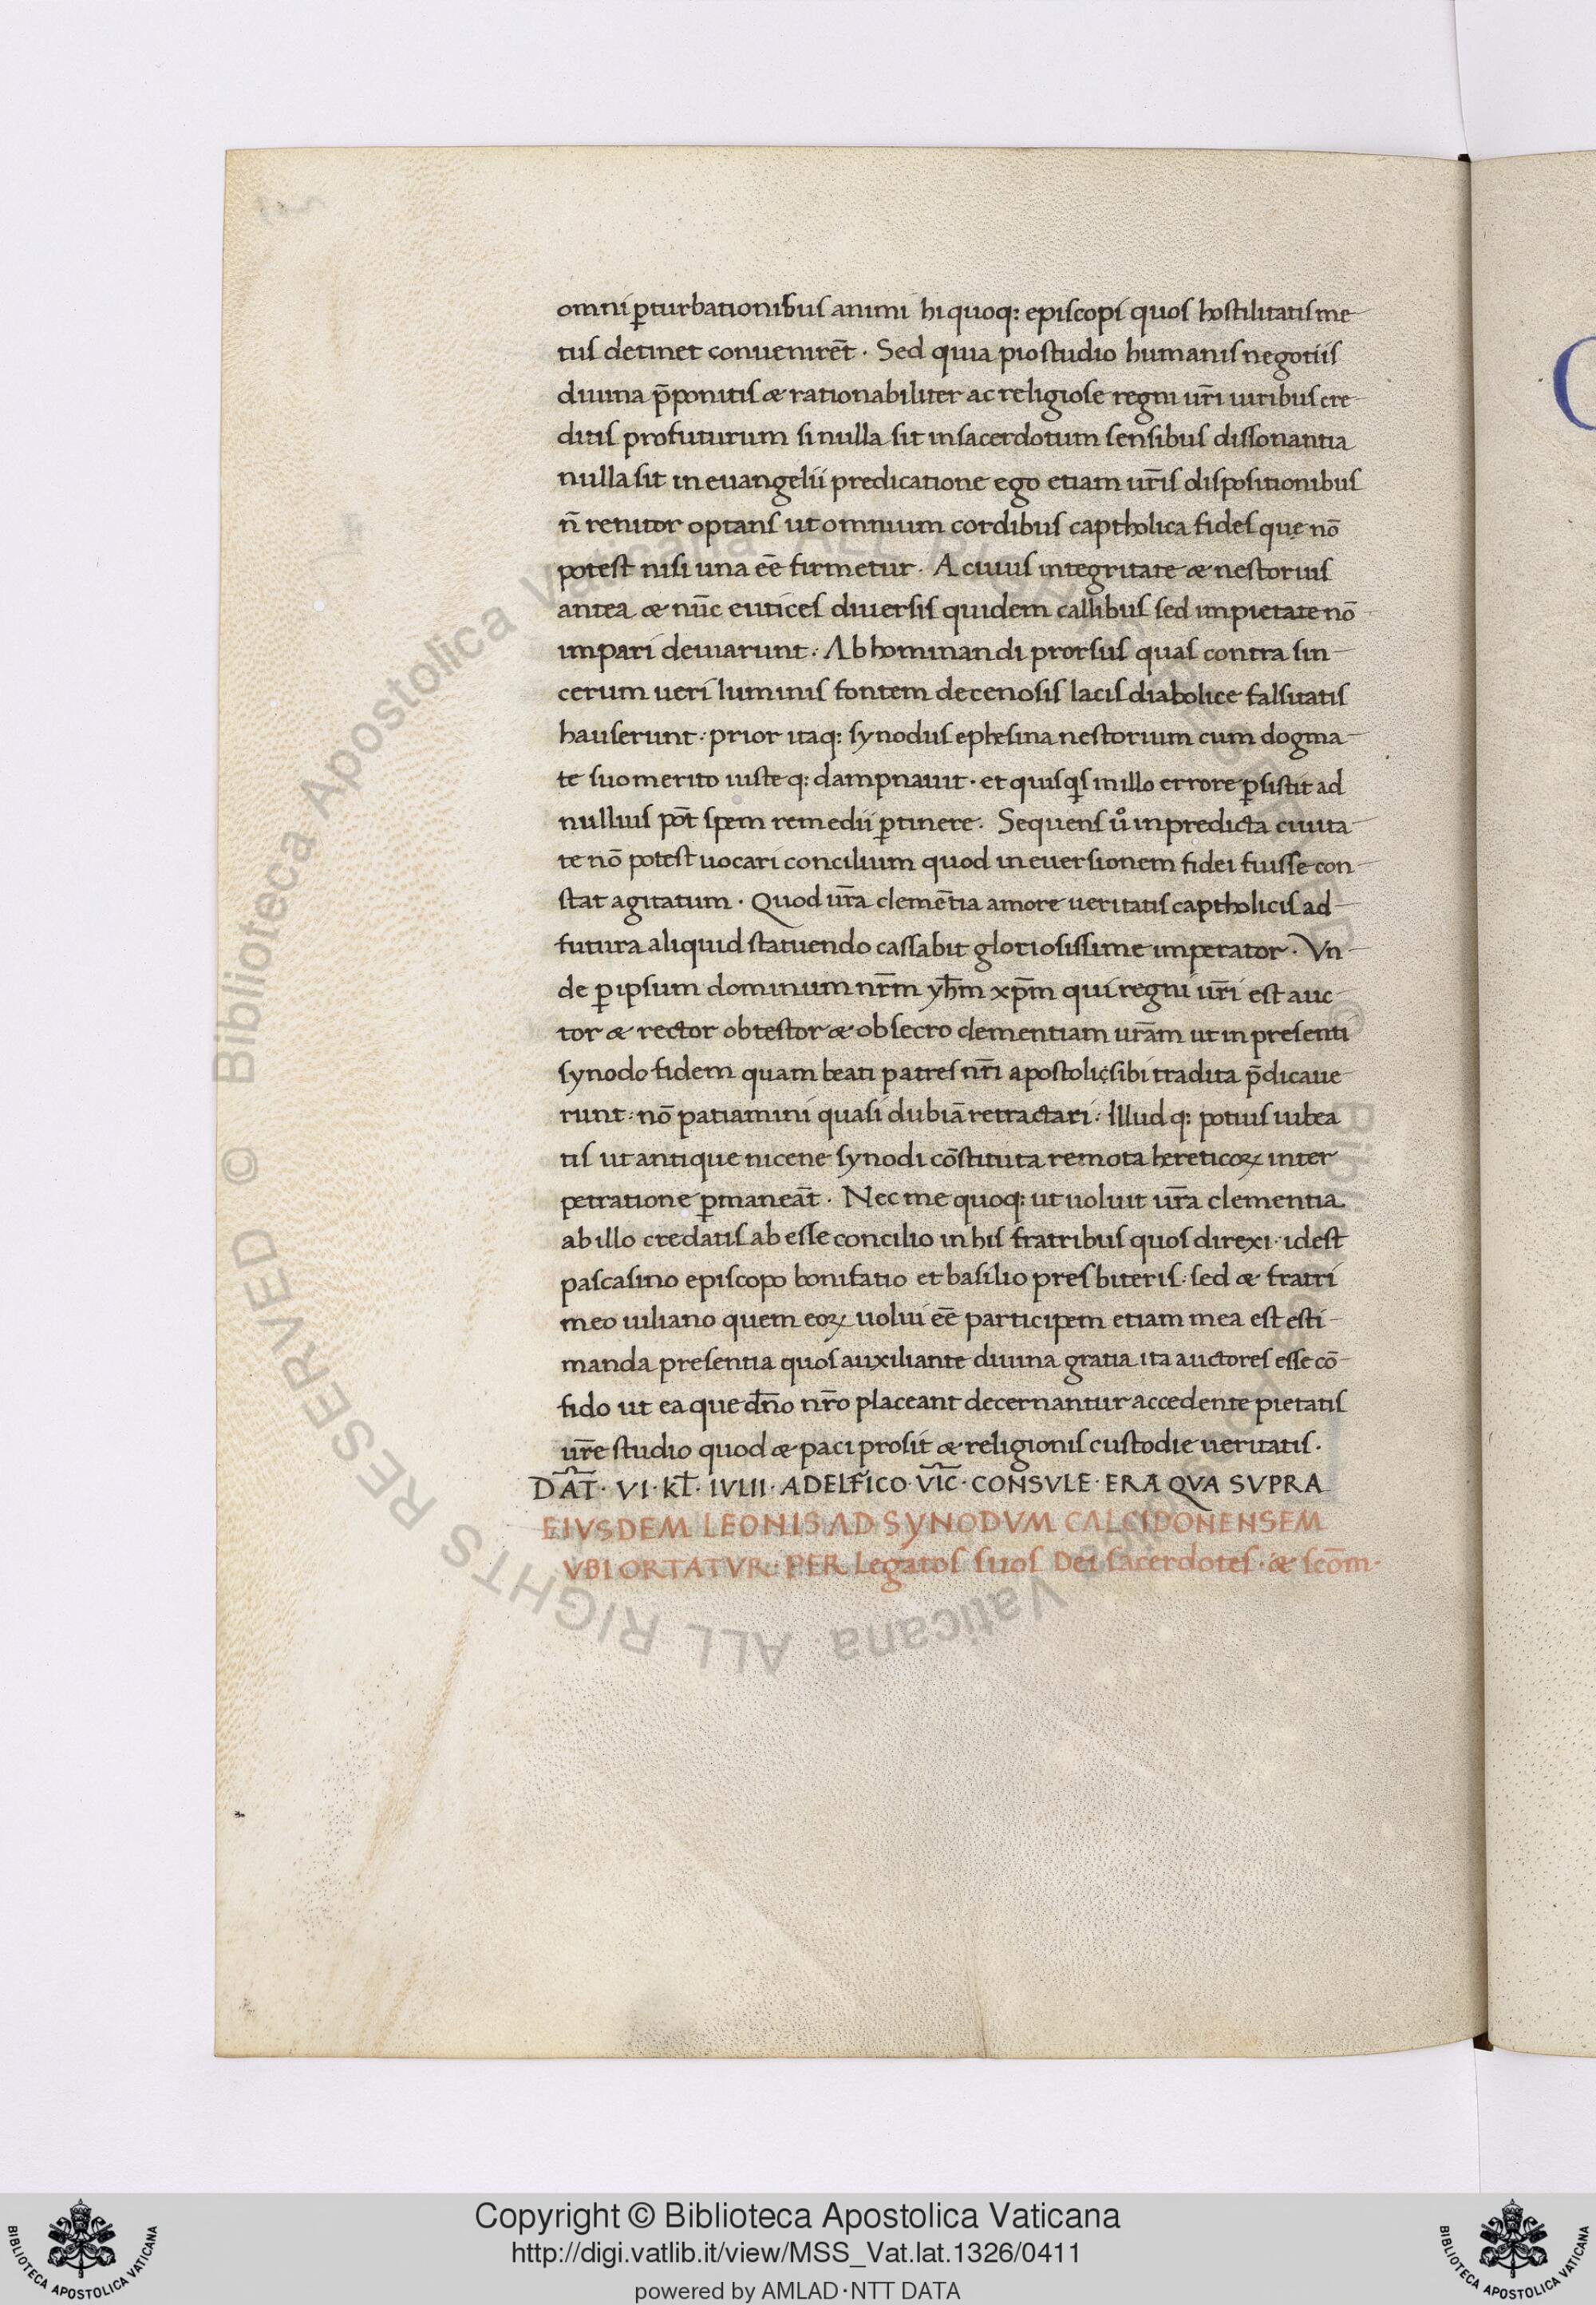 omni ꝑturbationibus animi hi quoq: episcopi quos hostilitatis me-
tus detinet conuenirēt · Sed quia pio studio humanis negotiis
diuina p̄ponitis & rationabiliter ac religiose regni ur̄i uiribus cre-
ditis profuturum si nulla sit in sacerdotum sensibus dissonantia
nulla sit in euangelii predicatione ego etiam ur̄is dispositionibus
n̄ renitor optans ut omnium cordibus captholica fides quę nō
potest nisi una eē firmetur. A cuius integritate & nestorius
antea & nūc eutices diuersis quidem callibus sed impietate nō-
impari deuiarunt. Abhominandi prorsus quas contra sin-
cerum ueri luminis fontem de cenosis lacis diabolice falsitatis
hauserunt. prior itaq: synodus ephesina nestorium cum dogma-
te suo merito iusteq: dampnauit · et quisq̄s in illo errore ꝑsistit ad
nullius pōt spem remedii ꝑtinere. Sequens uº in predicta ciuita-
te nō potest uocari concilium quod in euersionem fidei fuisse con-
stat agitatum · Quod ur̄a clemētia amore ueritatis captholicis ad-
futura aliquid statuendo cassabit gloriosissime imperator. Vn-
de ꝑ ipsum dominum nr̄m yh̄m xp̄m qui regni ur̄i est auc-
tor & rector obtestor & obsecro clementiam ur̄am ut in presenti
synodo fidem quam beati patres nr̄i apostolicę sibi tradita p̄dicaue-
runt. nō patiamini quasi dubiā retractari. Illud q: potius iubea
tis ut antique nicene synodi cōstituta remota hereticoꝝ inter
petratione ꝑmaneāt. Nec me quoq: ut uoluit ur̄a clementia
ab illo credatis ab esse concilio in his fratribus quos direxi. idest
pascasino episcopo bonifatio et basilio presbiteris. sed & fratri
meo iuliano quem eoꝝ uolui eē participem etiam mea est esti-
manda presentia quos auxiliante diuina gratia ita auctores esse cō-
fido ut ea que dn̄o nr̄o placeant decernantur accedente pietatis
ur̄e studio quod & paci prosit & religionis custodie ueritatis.
DAT̄ · VI · KL̄ · IVLII · ADELFICO VIC̄ · CONSVLE · ERA QVA SVPRA
EIVSDEM LEONIS AD SYNODVM CALCIDONENSEM
VBI ORTATVR. PER Legatos suos Dei sacerdotes. & scōm.
Copyright © Biblioteca Apostolica Vaticana
http://digi.vatlib.it/view/MSS_Vat.lat.1326/0411
powered by AMLAD·NTT DATA
BIBLIOTECA APOSTOLICA VATICANA
BIBLIOTECA APOSTOLICA VATICANA
© Biblioteca Apostolica Vaticana ALL RIGHTS RESERVED
© Biblioteca Apostolica Vaticana ALL RIGHTS RESERVED